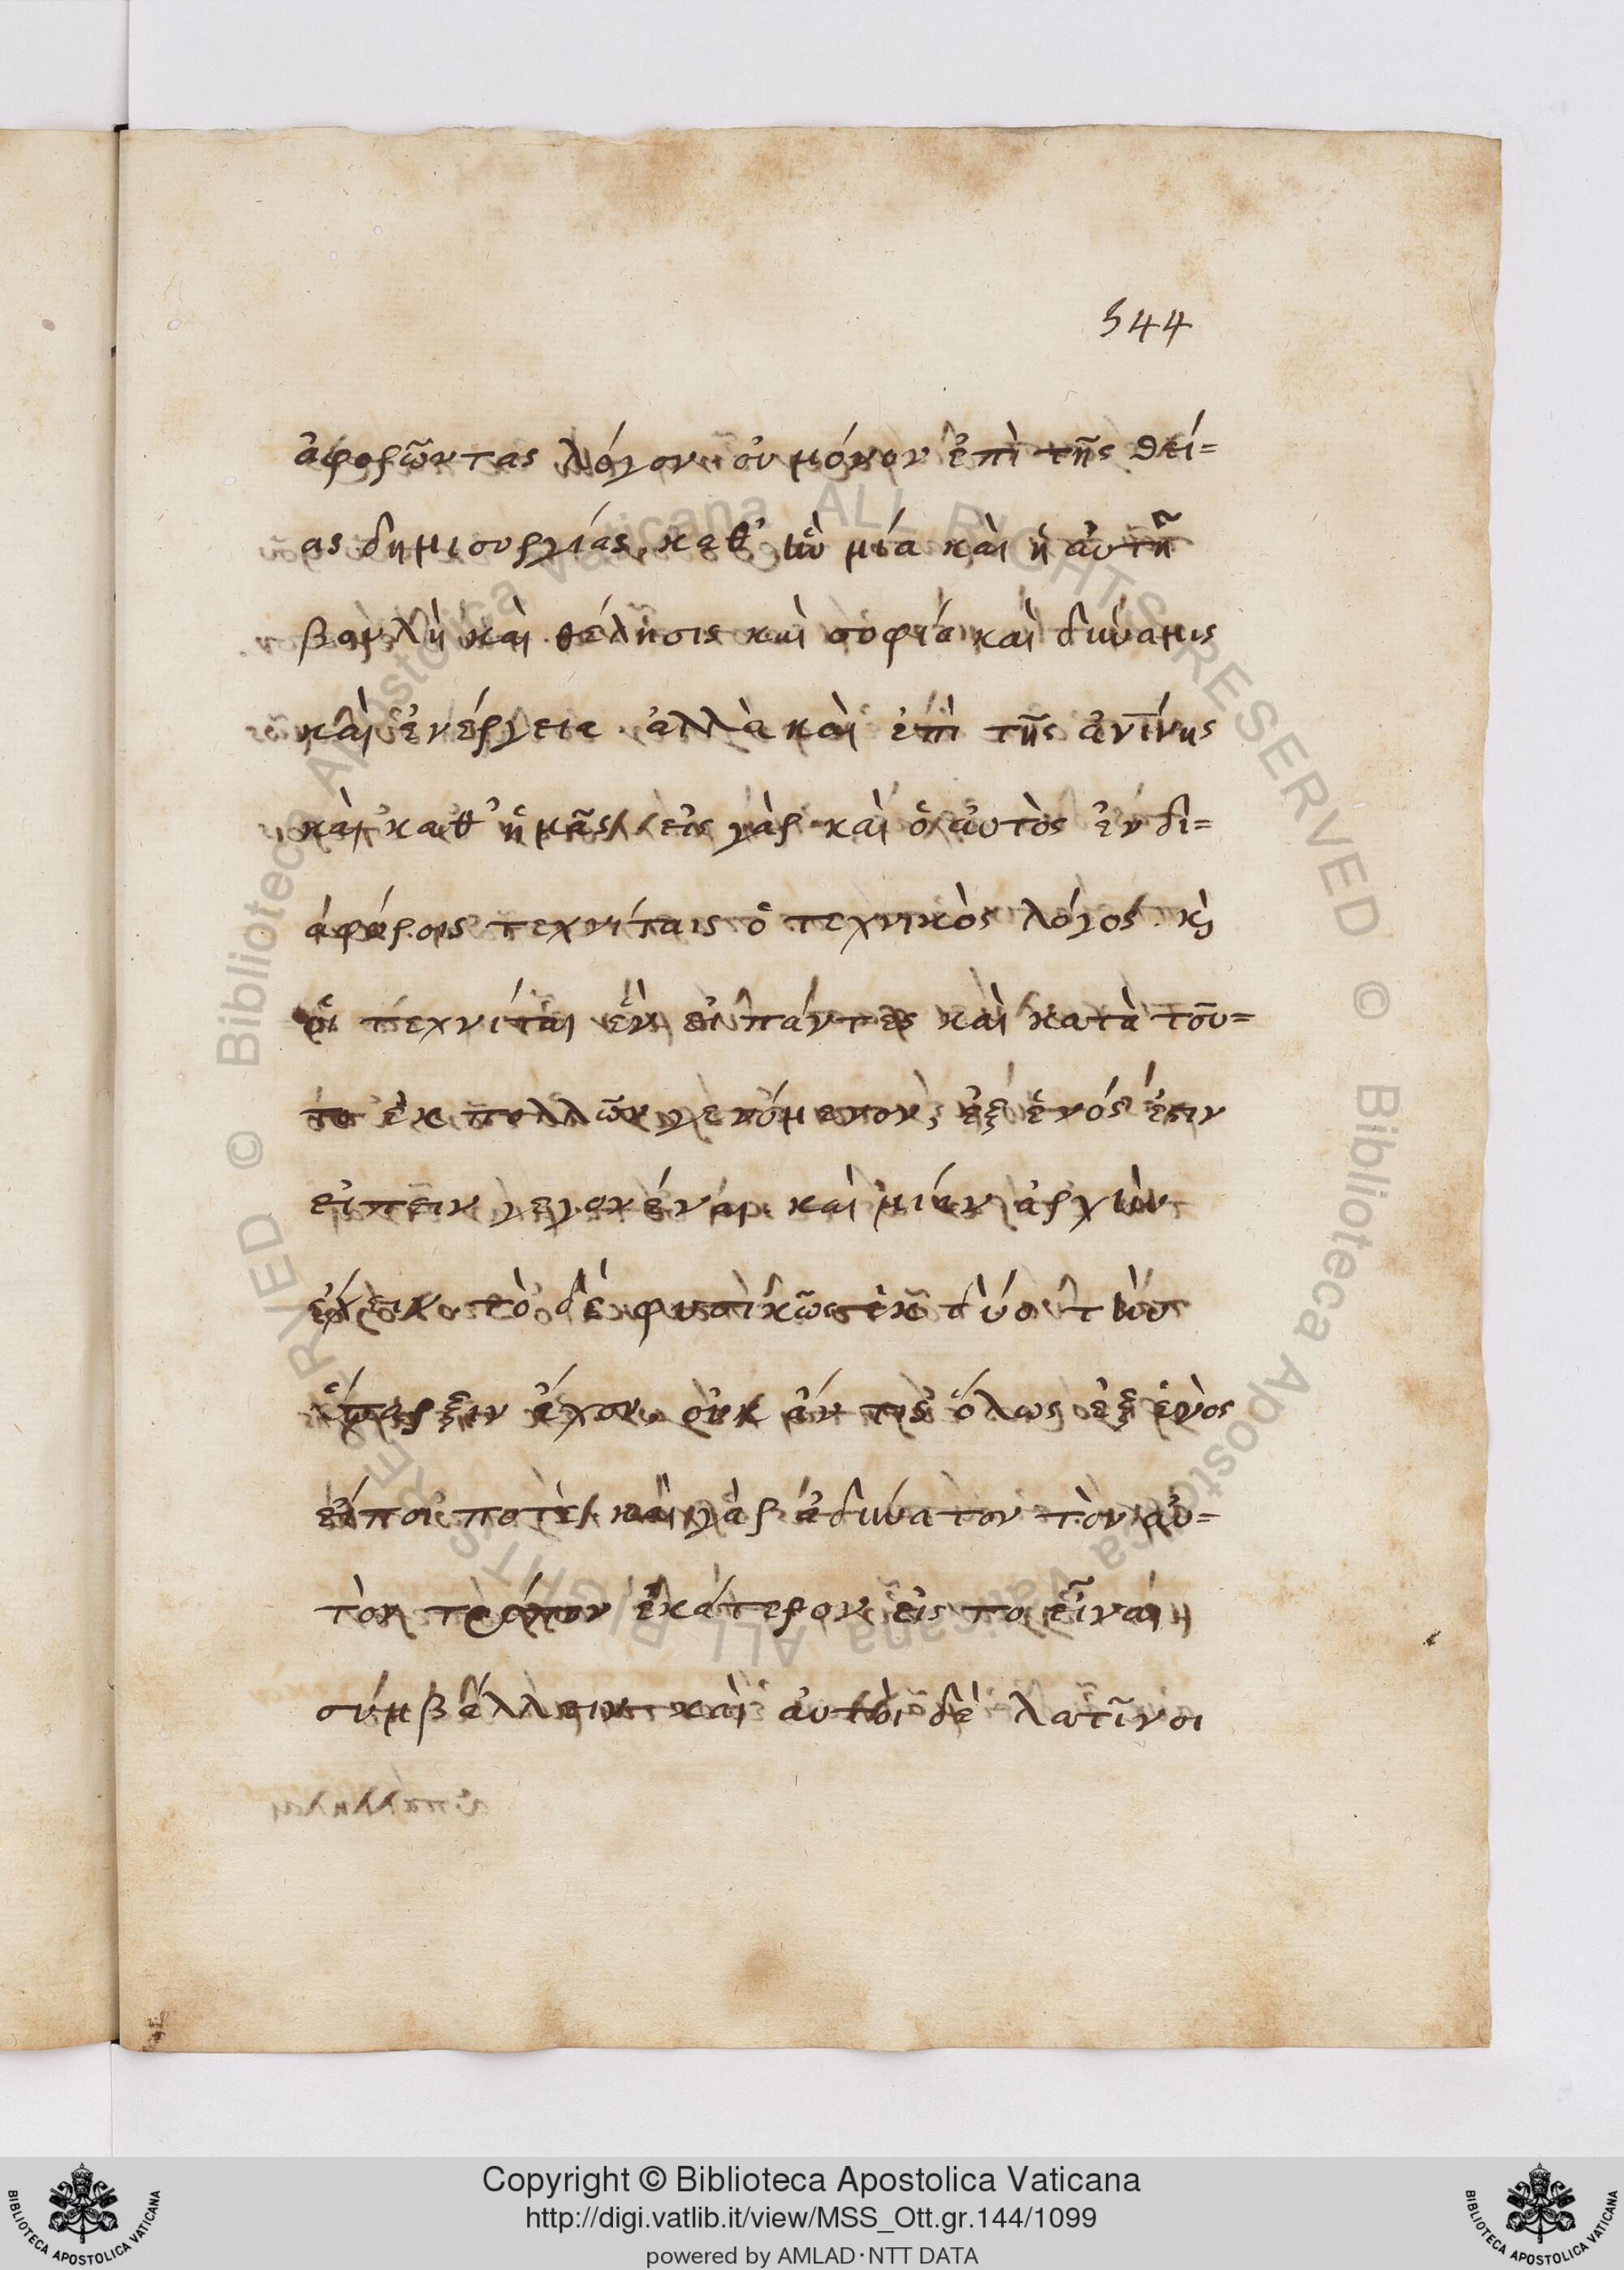 544
ἀφορῶντας λόγον οὐ μόνον ἐπὶ τῆς θεί=
ας δημιουργίας, καθ' ἣν μία καὶ ἡ αὐτὴ
βουλὴ καὶ θέλησις καὶ σοφία καὶ δύναμις
καὶ ἐνέργεια. ἀλλὰ καὶ ἐπὶ τῆς ἀν̅ίνης
καὶ καθ' ἡμᾶς. εἷς γὰρ καὶ ὁ αὐτὸς ἐν δι=
αφόροις τεχνίταις ὁ τεχνικὸς λόγος. κὶ
οἱ τεχνίται ἓν οἱ πάντες καὶ κατὰ τοῦ=
το ἐκ πολλῶν γενόμενον, ἐξ ἑνός ἐστιν
εἰπεῖν γεγονέναι καὶ μίαν ἀρχὴν
ἔχειν. τὸ δὲ φυσικῶς ἐκ δύο τὴν
ὕπαρξιν ἔχον, οὐκ ἄν τις ὅλως ἐξ ἑνὸς
εἴποι ποτὲ. καὶ γὰρ ἀδύνατον τὸν αὐ=
τὸν τρόπον ἑκάτερον εἰς τὸ εἶναι
συμβάλλειν. καὶ αὐτοὶ δὲ λατῖνοι
Copyright © Biblioteca Apostolica Vaticana
http://digi.vatlib.it/view/MSS_Ott.gr.144/1099
powered by AMLAD·NTT DATA
© Biblioteca Apostolica Vaticana ALL RIGHTS RESERVED
© Biblioteca Apostolica Vaticana ALL RIGHTS RESERVED
BIBLIOTECA APOSTOLICA VATICANA
BIBLIOTECA APOSTOLICA VATICANA